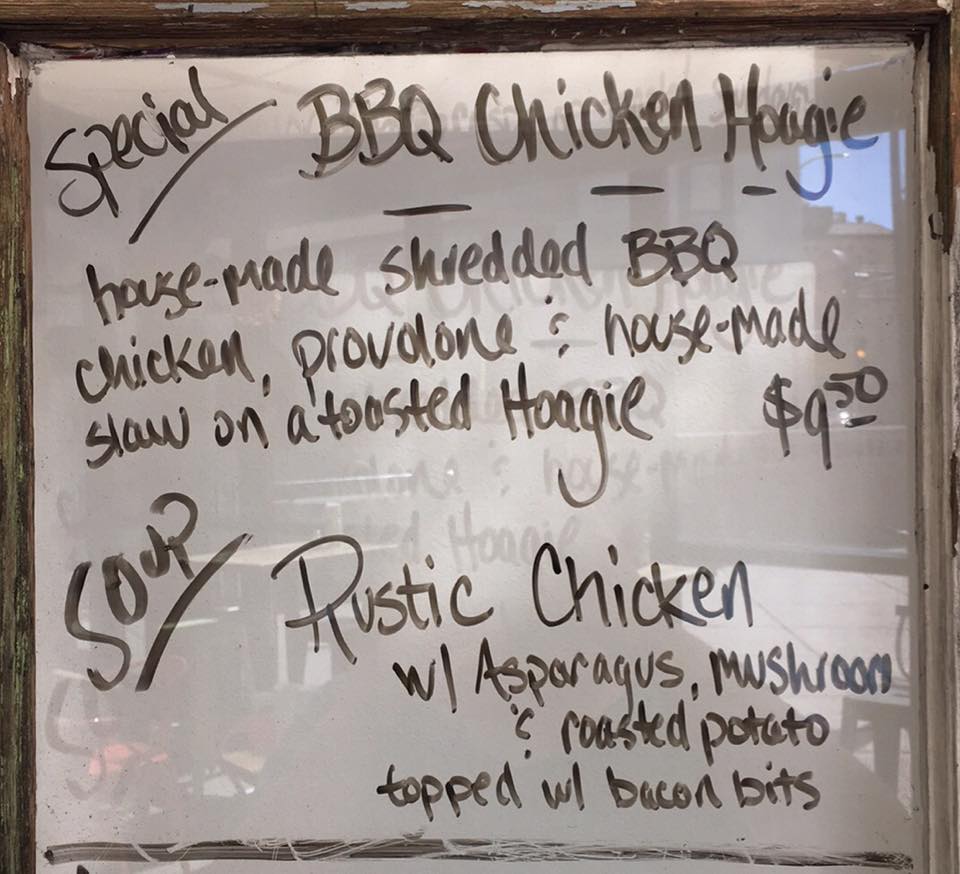 Special BBQ Chicken Hoagie
house-made shredded BBQ
chicken, provolone & house-made
slaw on a toasted Hoagie $9.50
Soup Rustic Chicken
w/ Asparagus, mushroom
& roasted potato
topped w/ bacon bits